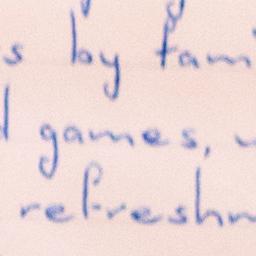 s by fami
d games, w
refreshm